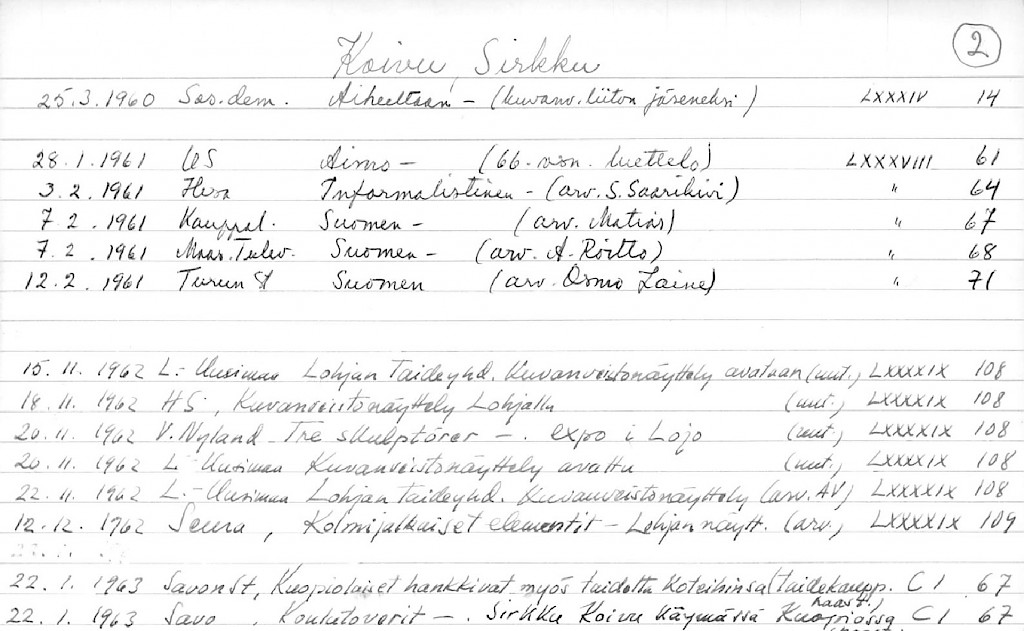 2
Koivu, Sirkku
25.3.1960 Sos.dem. Aiheeltaan - (kuvanv.liiton jäseneksi) LXXXIV 14
28.1.1961 US Aimo - (66-von. luettelo) LXXXVIII 61
3.2.1961 Hbsa Informalistinen - (arv. S. Saarikivi) " 64
7.2.1961 Kauppal. Suomen - (arv. Matias) " 67
7.2.1961 Maas.Tulev. Suomen - (arv. A. Röitto) " 68
12.2.1961 Turun S Suomen (arv. Osmo Laine) " 71
15.11.1962 L.-Uusimaa Lohjan Taideyhd. Kuvanveistonäyttely avataan (uut.) LXXXXIX 108
18.11.1962 HS, Kuvanveistonäyttely Lohjalla (uut.) LXXXXIX 108
20.11.1962 V.Nyland - Tre skulptörer -. expo i Lojo (uut.) LXXXXIX 108
20.11.1962 L-Uusimaa Kuvanveistonäyttely avattu (uut.) LXXXXIX 108
22.11.1962 L.-Uusimaa Lohjan Taideyhd. Kuvanveistonäyttely (arv. AV) LXXXXIX 108
12.12.1962 Seura, Kolmijalkaiset elementit - Lohjan näytt. (arv.) LXXXXIX 109
22.1.1963 SavonSt, Kuopiolaiset hankkivat myös taidetta koteihinsa (taidekaupp. C1 67
22.1.1963 Savo, - Sirkku Koivu käymässä Kuopiossa C1 67